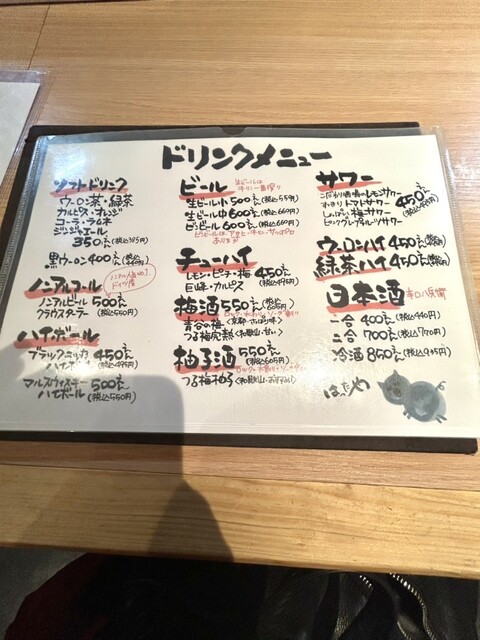 ドリンクメニュー
ソフトドリンク
ウーロン茶・緑茶
カルピス・オレンジ
コーラ・ラムネ
ジンジャエール
350えん(税込385円)
黒ウーロン400えん
ノンアルコール
ノンアルビール 500えん
クラウスターラー(税込550円)
ハイボール
ブラックニッカ 450えん
ハイボール(税込495円)
マルスウイスキー 500えん
ハイボール(税込550円)
ビール
生ビールは
キリン一番搾り
生ビール小500えん(税込550円)
生ビール中600えん(税込660円)
ビンビール600えん(税込660円)
ビンビールはアサヒ・キリン・サッポロ
あります
チューハイ
レモン・ピーチ・梅 450えん
巨峰・カルピス(税込495円)
梅酒 550えん(税込605円)
青谷の梅
つる梅完熟(和歌山・甘い)
柚子酒 550えん(税込605円)
つる梅柚子(和歌山・
サワー
こだわり酒場のレモンサワー
トマトサワー 450えん
しょっぱい梅サワー
ピンクグレープフルーツサワー
ウーロンハイ 450えん
緑茶ハイ 450えん
日本酒
一合 400えん(税込440円)
二合 700えん(税込770円)
冷酒 850えん(税込935円)